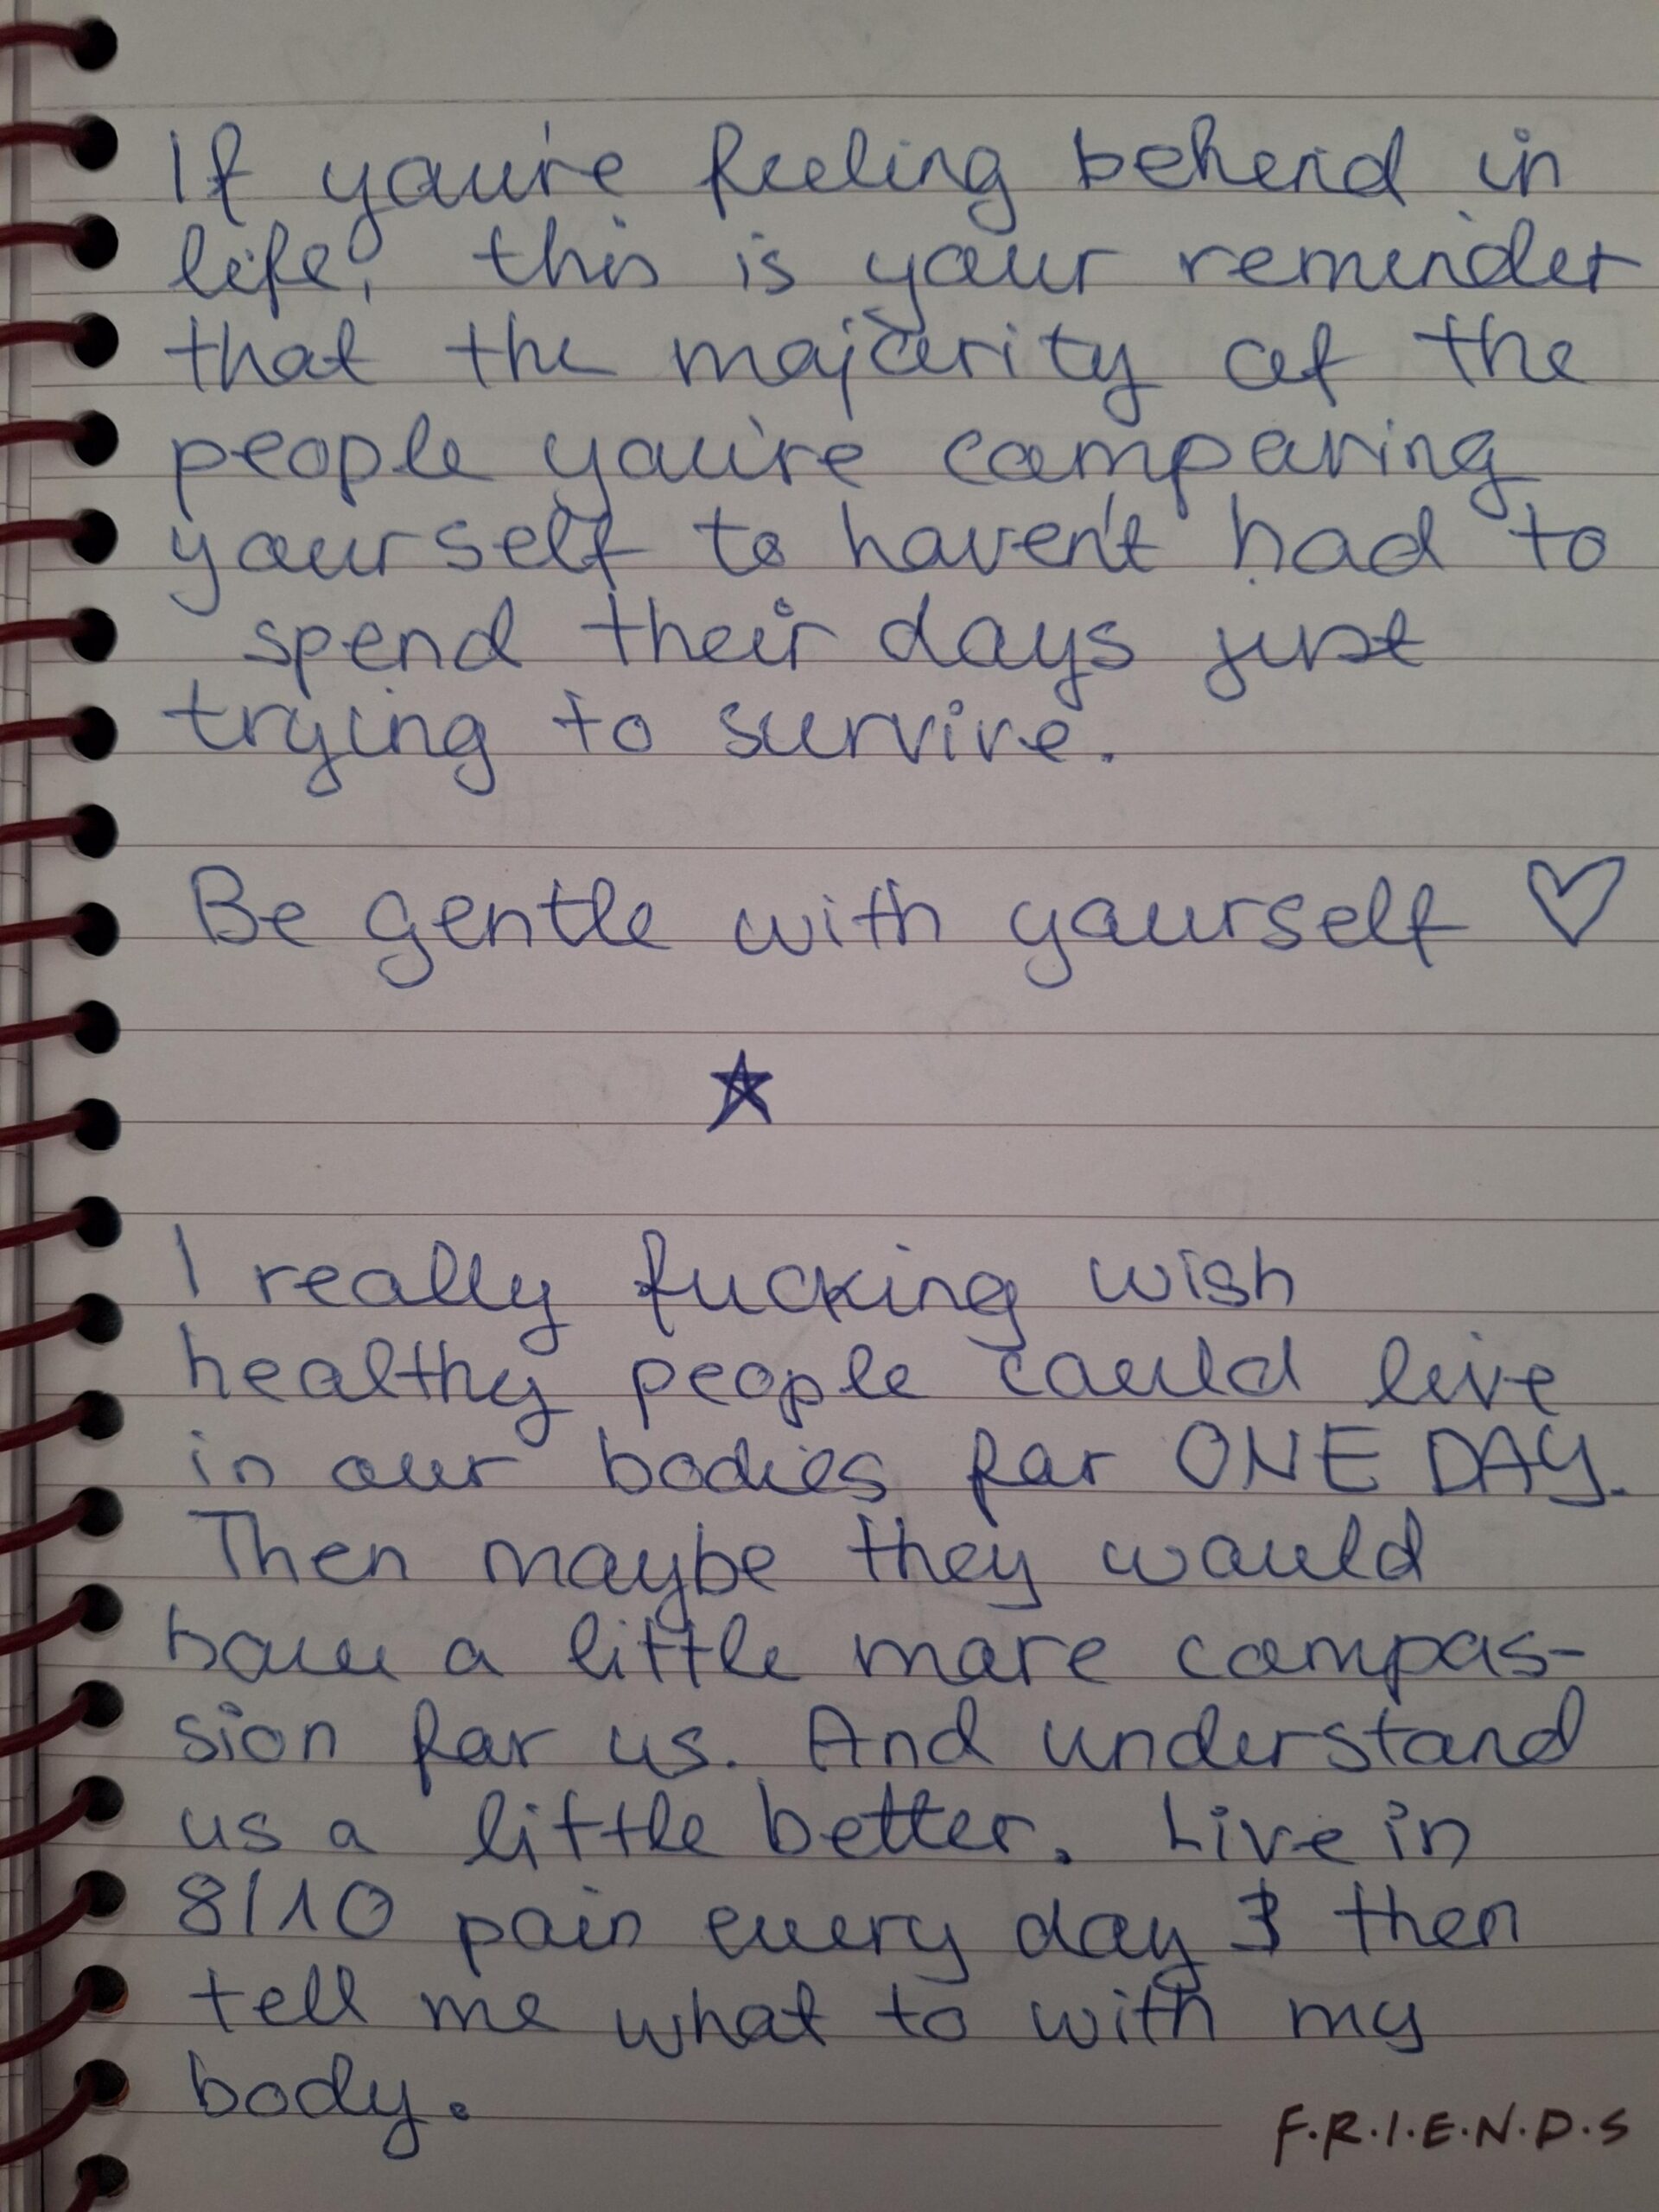 If you're feeling behind in
life, this is your reminder
that the majority of the
people you're comparing
yourself to haven't had to
spend their days just
trying to survive.
Be gentle with yourself ♡
☆
I really fucking wish
healthy people could live
in our bodies for ONE DAY.
Then maybe they would
have a little more compas-
sion for us. And understand
us a little better. Live in
8/10 pain every day & then
tell me what to with my
body.
F.R.I.E.N.D.S